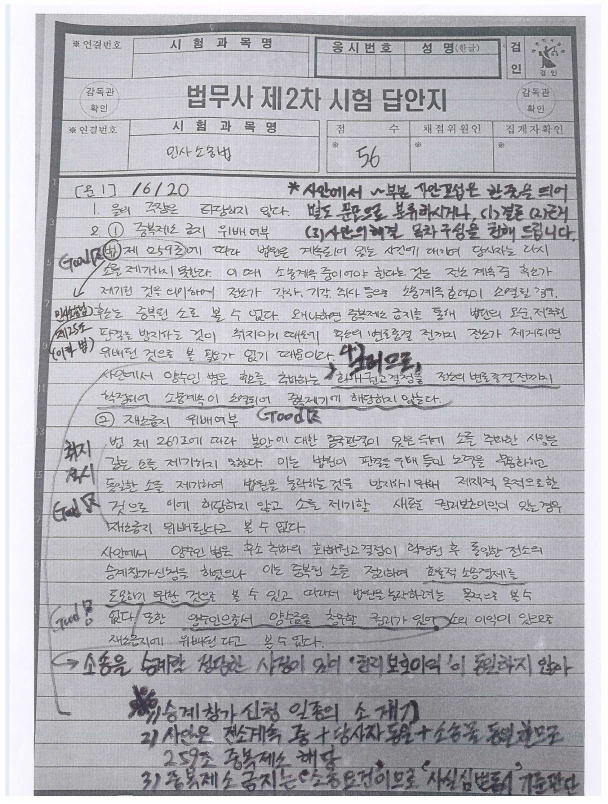 ※연결번호 시험과목명 응시번호 성명(한글) 검인
감독관 확인 법무사 제2차 시험 답안지 감독관 확인
※연결번호 시험과목명 점수 채점위원인 집계자확인
민사소송법 ※ 56 ※ ※
[문1] 16/20 * 사안에서 ~부분 사안포섭은 한줄을 띄어
1. 을의 주장은 타당하지 않다. 별도 문단으로 분류하시거나, (1)결론 (2)근거
2. ① 중복제소 금지 위배여부 (3)사안의 해결 목차구성을 권해 드립니다.
Good 법 제259조에 따라 법원에 계속되어 있는 사건에 대하여 당사자는 다시
소를 제기하지 못한다. 이 때 소송계속 중이어야 한다는 것은 전소 계속 중 후소가
제기된 것을 의미하며 전소가 각하, 기각, 취하 등으로 소송계속 효력이 소멸된 경우,
후소는 중복된 소로 볼 수 없다. 왜냐하면 중복제소 금지를 통해 법원의 모순, 저촉된
판결을 방지하는 것이 취지이기 때문에 후소의 변론종결 전까지 전소가 제거되면
위배된 것으로 볼 필요가 없기 때문이다. 4)
사안에서 양수인 병은 후소를 취하하는 화해권고결정을 전소의 변론종결전까지
확정되어 소송계속이 소멸되어 중복제기에 해당하지 않는다.
② 재소금지 위배여부 Good
취지 법 제267조에 따라 본안에 대한 종국판결이 있은 뒤에 소를 취하한 사람은
같은 소를 제기하지 못한다. 이는 법원이 판결을 위해 들인 노력을 무용하고
동일한 소를 제기하여 법원을 농락하는 것을 방지하기 위해 제재적 목적으로 한
Good 것으로 이에 해당하지 않고 소를 제기할 새로운 권리보호이익이 있는 경우
재소금지 위배된다고 볼 수 없다.
사안에서 양수인 병은 후소 취하의 화해권고결정이 확정된 후 동일한 전소의
승계참가신청을 하였으나 이는 중복된 소를 정리하여 효율적 소송경제를
도모하기 위한 것으로 볼 수 있고 따라서 법원을 농락하려는 목적으로 볼 수
Good 없다. 또한 양수인으로서 양수금을 청구할 권리가 있어 소의 이익이 있으므로
재소금지에 위배된다고 볼 수 없다.
→ 소송을 승계할 정당한 사정이 있어 '권리보호이익'이 동일하지 않아
1) 승계참가신청 일종의 소 제기
2) 사안은 전소계속 중 + 당사자동일 + 소송물 동일하므로
259조 중복제소 해당
3) 중복제소 금지는 "소송요건"이므로 "사실심변종시" 기준판단